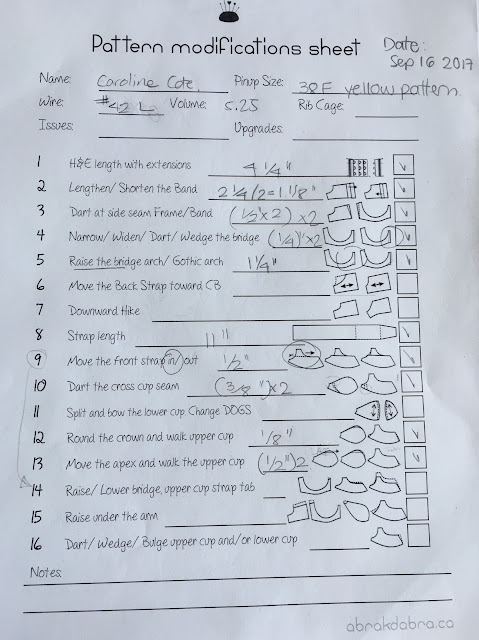 Pattern modifications sheet
Date:
Sep 16 2017
Name: Caroline Cote. Pinup Size: 32E yellow pattern.
Wire: #42 L Volume: 5.25 Rib Cage:
Issues: Upgrades:
1 H&E length with extensions 4 1/4"
2 Lengthen/ Shorten the Band 2 1/4/2=1 1/8"
3 Dart at side seam Frame/Band (1/2"x2) x2
4 Narrow/ Widen/ Dart/ Wedge the bridge (1/4)"x2
5 Raise the bridge arch/ Gothic arch 1 1/4"
6 Move the Back Strap toward CB
7 Downward Hike
8 Strap length 11"
9 Move the front strap in/ out 1/2"
10 Dart the cross cup seam (3/8")x2
11 Split and bow the lower cup Change DOGS
12 Round the crown and walk upper cup 1/8"
13 Move the apex and walk the upper cup (1/2")2
14 Raise/ Lower bridge, upper cup strap tab
15 Raise under the arm
16 Dart/ Wedge/ Bulge upper cup and/or lower cup
Notes:
abrakdabra.ca